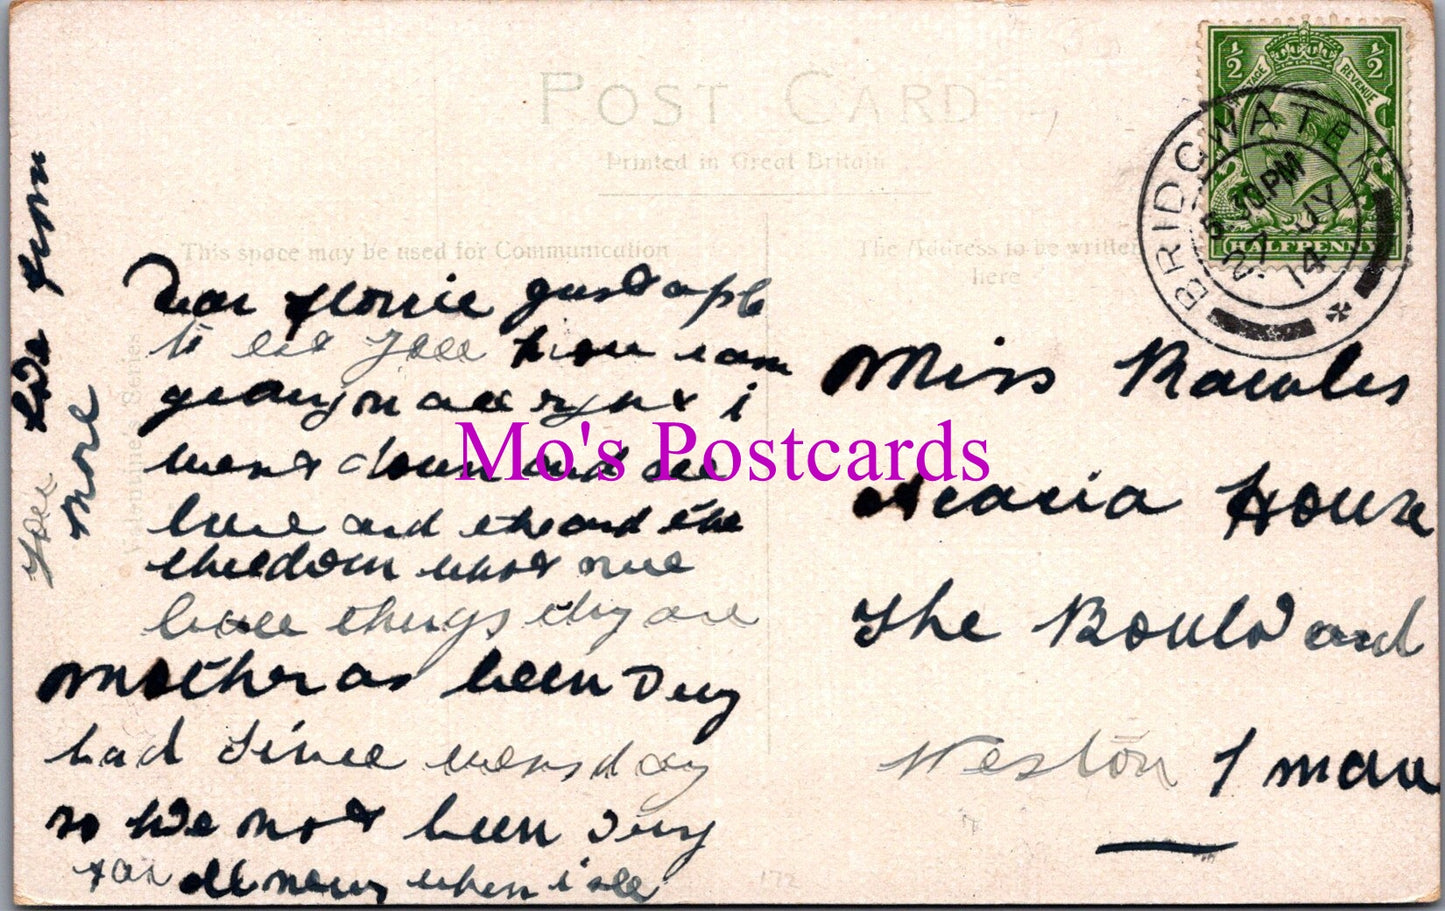 POST CARD
Printed in Great Britain
This space may be used for Communication
The Address to be written
here
Valentine's Series
½ ½
POSTAGE REVENUE
HALFPENNY
BRIDGWATER
5 30PM
27 JY
14
Mo's Postcards
Dear Florrie just a
to let you know i am
going on all right i
went down and see
and the
what nice
little things they are
mother as been very
bad since wensday
so we not been very
far all news when i see
you
more
from
Miss Rawles
Acacia House
The Boulvard
Weston S mare